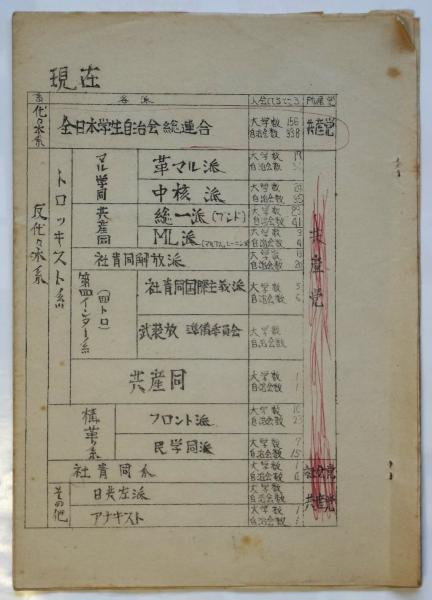 現在
各派
所属党
代々木系
全日本学生自治会総連合
大学数 156
自治会数 338
共産党
反代々木系
トロッキスト系
マル学同
革マル派
大学数
自治会数
中核派
大学数
自治会数 35
共産同
統一派(ブンド)
大学数
自治会数 41
ML派
大学数 3
自治会数 4
社青同解放派
大学数
自治会数 20
第四インター系
(四トロ)
社青同国際主義派
大学数 5
自治会数 6
武装放 準備委員会
大学数
自治会数
共産同
大学数 1
自治会数 1
共産党
構革系
フロント派
大学数 10
自治会数 23
民学同派
大学数 7
自治会数 15
社青同系
大学数 1
自治会数 6
社会党
その他
日共左派
大学数
自治会数
共産党
アナキスト
大学数 1
自治会数